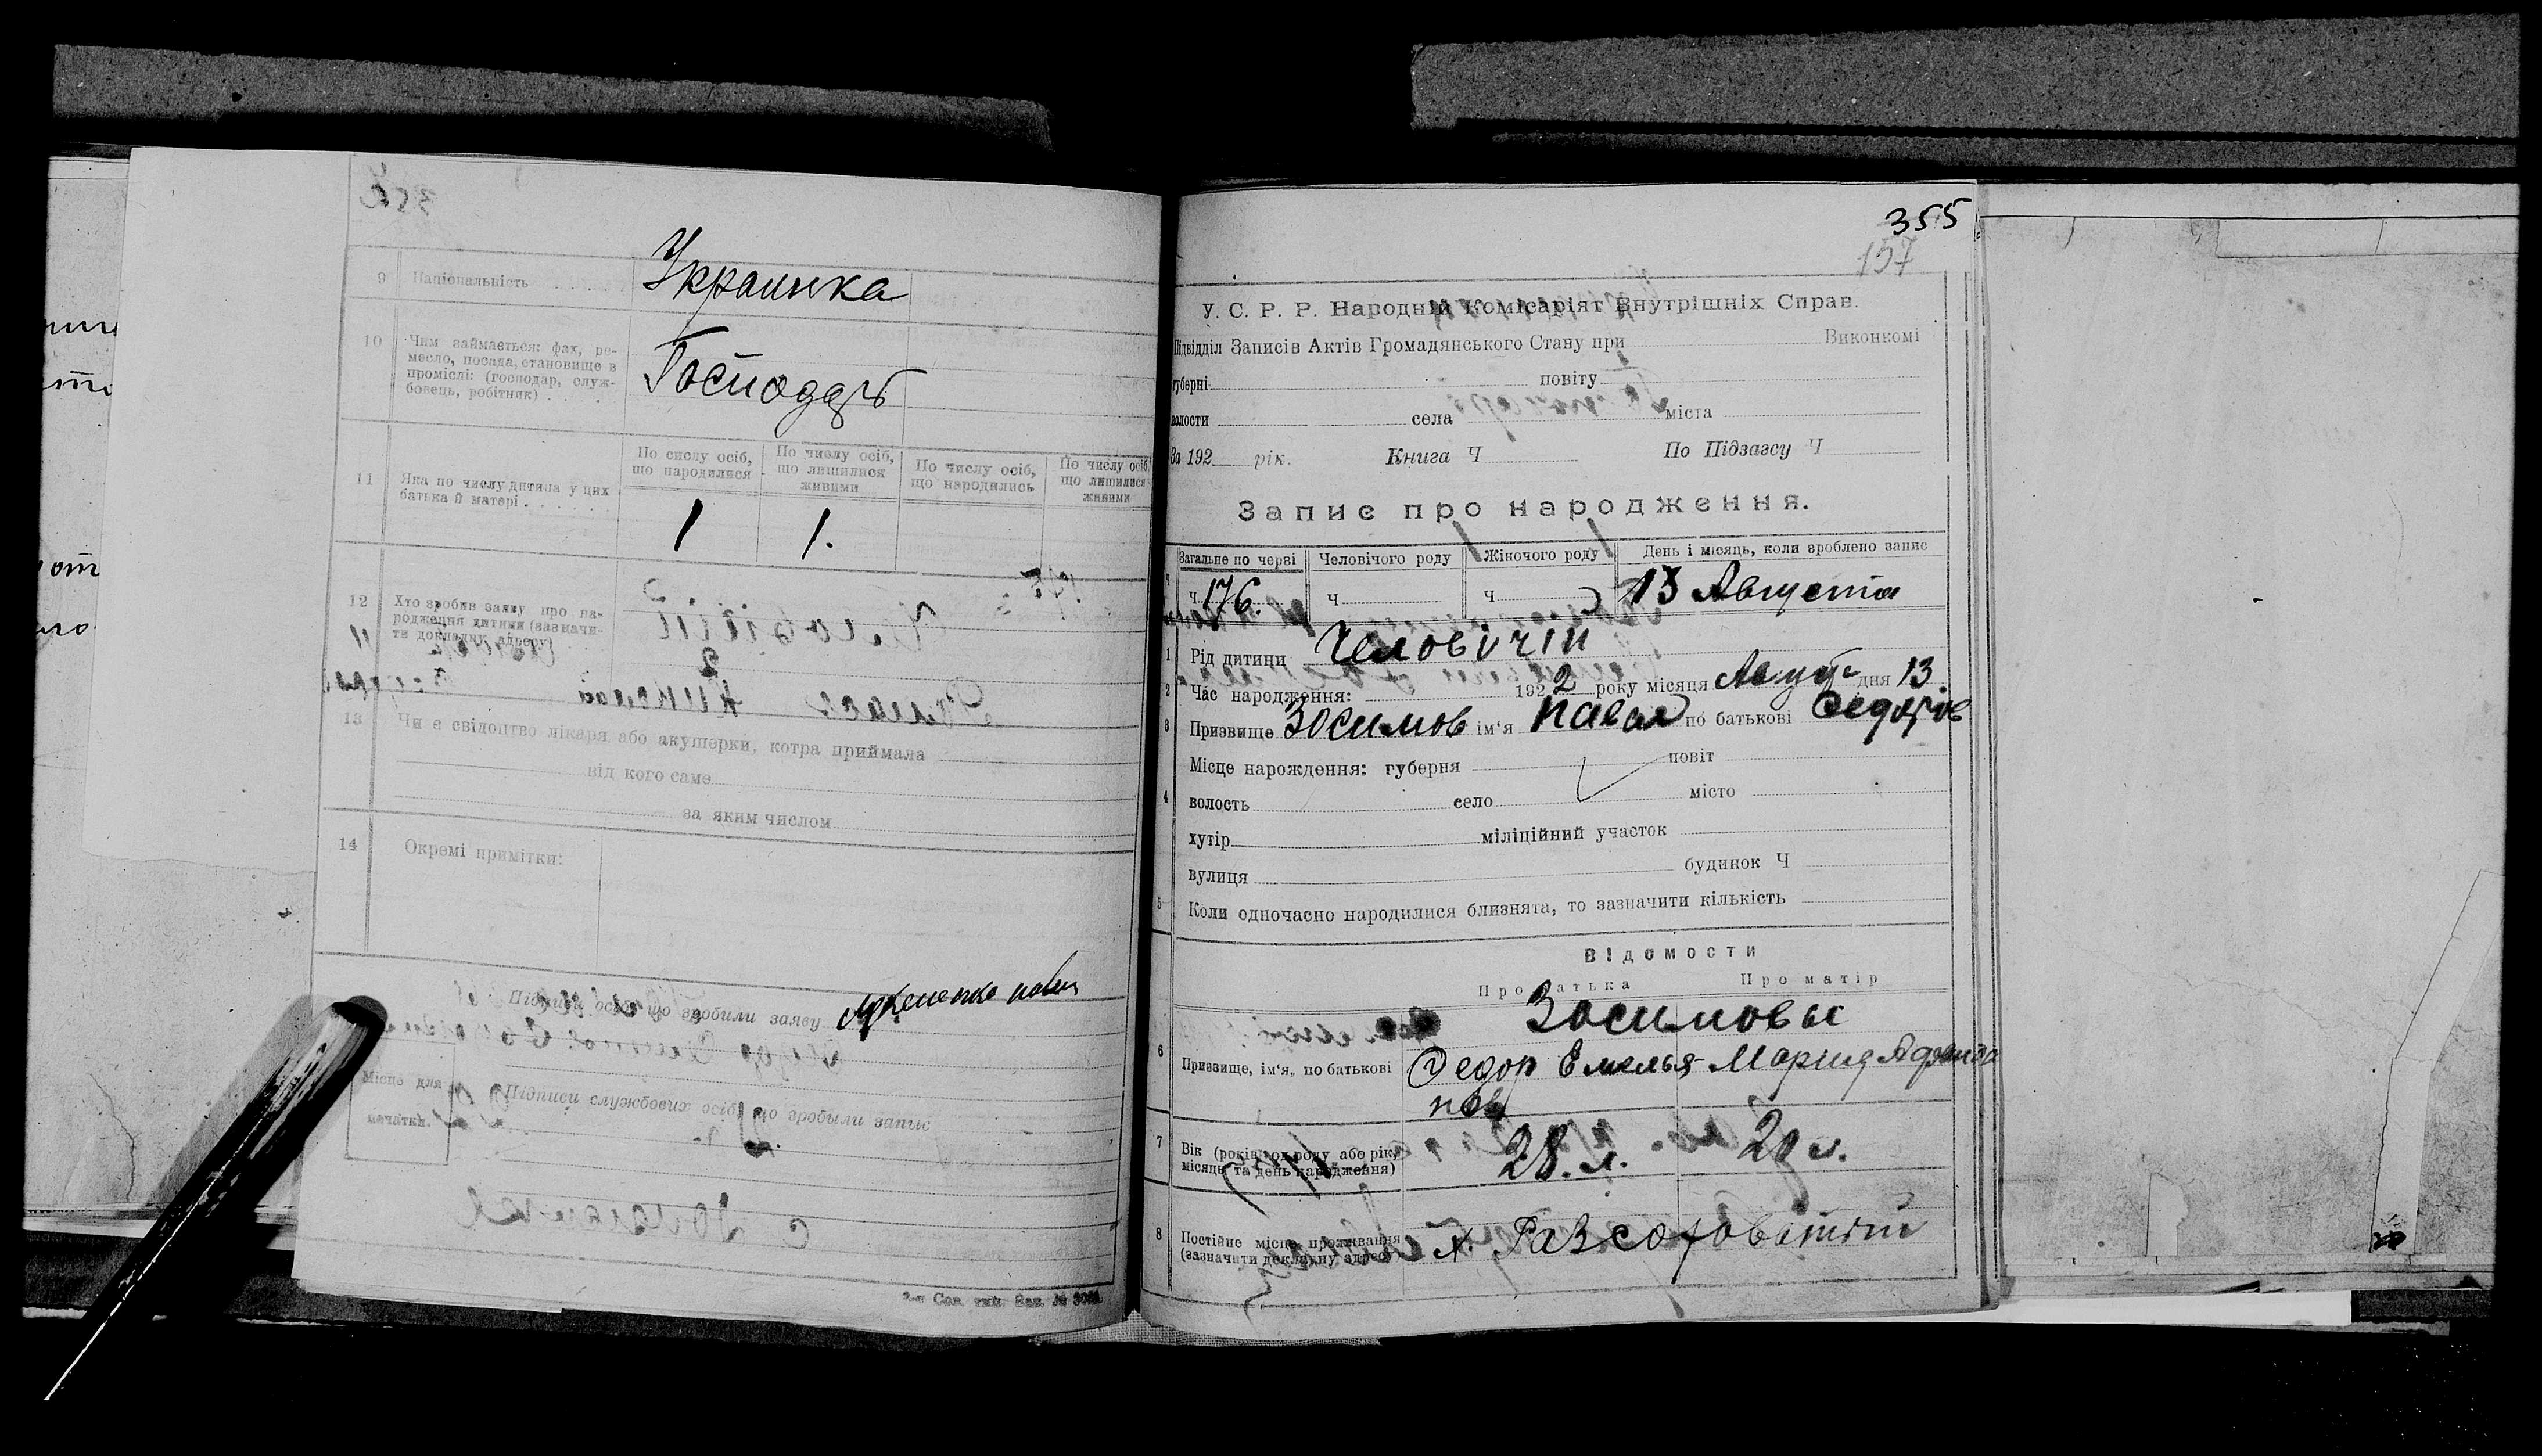 9 Національність Украинка
10 Чим займається: фах, ре-
месло, посада, становище в
проміслі: (господар, служ-
бовець, робітник) Господарь
По числу осіб, що народилися
По числу осіб, що лишилися живими
По числу осіб, що народились
По числу осіб, що лишилися живими
11 Яка по числу дитина у цих
батька й матері 1 1.
12 Хто зробив заяву про на-
родження дитини (зазначи-
ти докладну адресу)
13 Чи є свідоцтво лікаря або акушерки, котра приймала
від кого саме
за яким числом
14 Окремі примітки:
Підписи осіб, що зробили заяву
Місце для
печатки.
Підписи службових осіб, що зробыли запис
355
157
У. С. Р. Р. Народній Комісаріят Внутрішніх Справ.
Підвідділ Записів Актів Громадянського Стану при Виконкомі
губерні повіту
волости села міста
За 192 рік. Книга Ч По Підзагсу Ч
Запис про народження.
Загальне по черзі Человічого роду Жіночого роду День і місяць, коли зроблено запис
ч 176. ч ч 13 Августа
1 Рід дитини Человічій
2 Час народження: 1922 року місяця Август дня 13
3 Призвище Зосимов ім'я Павел по батькові Федоров
4 Місце нарождення: губерня повіт
волость село місто
хутір міліційний участок
вулиця будинок Ч
5 Коли одночасно народилися близнята, то зазначити кількість
Відомости
Про батька Про матір
Зосимовы
6 Призвище, ім'я, по батькові Федор Емелья- Мария
нов
7 Вік (років од роду або рік,
місяць та день народження) 28. л. 20 л.
8 Постійне місце проживання
(зазначити докладну адресу) х. Разсоховатый